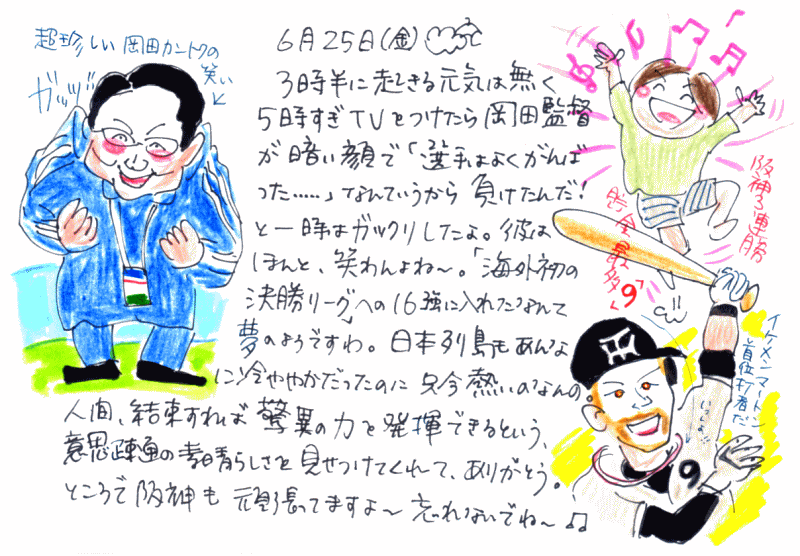 超珍しい岡田カントクの
笑い
ガッツ
6月25日(金)
3時半に起きる元気は無く
5時すぎTVをつけたら岡田監督
が暗い顔で「選手はよくがんば
った……」なんていうから負けたんだ!
と一時はガックリしたよ。彼は
ほんと、笑わんよね〜。「海外初の
決勝リーグ」への16強に入れたなんて
夢のようですわ。日本列島もあんな
に冷ややかだったのに只今熱いのなんの。
人間、結束すれば驚異の力を発揮できるという、
意思疎通の素晴らしさを見せつけてくれて、ありがとう。
ところで阪神も頑張ってますよ〜忘れないでね〜♫
阪神3連勝
貯金最多"9"
イケメンマートン
首位打者だ
9